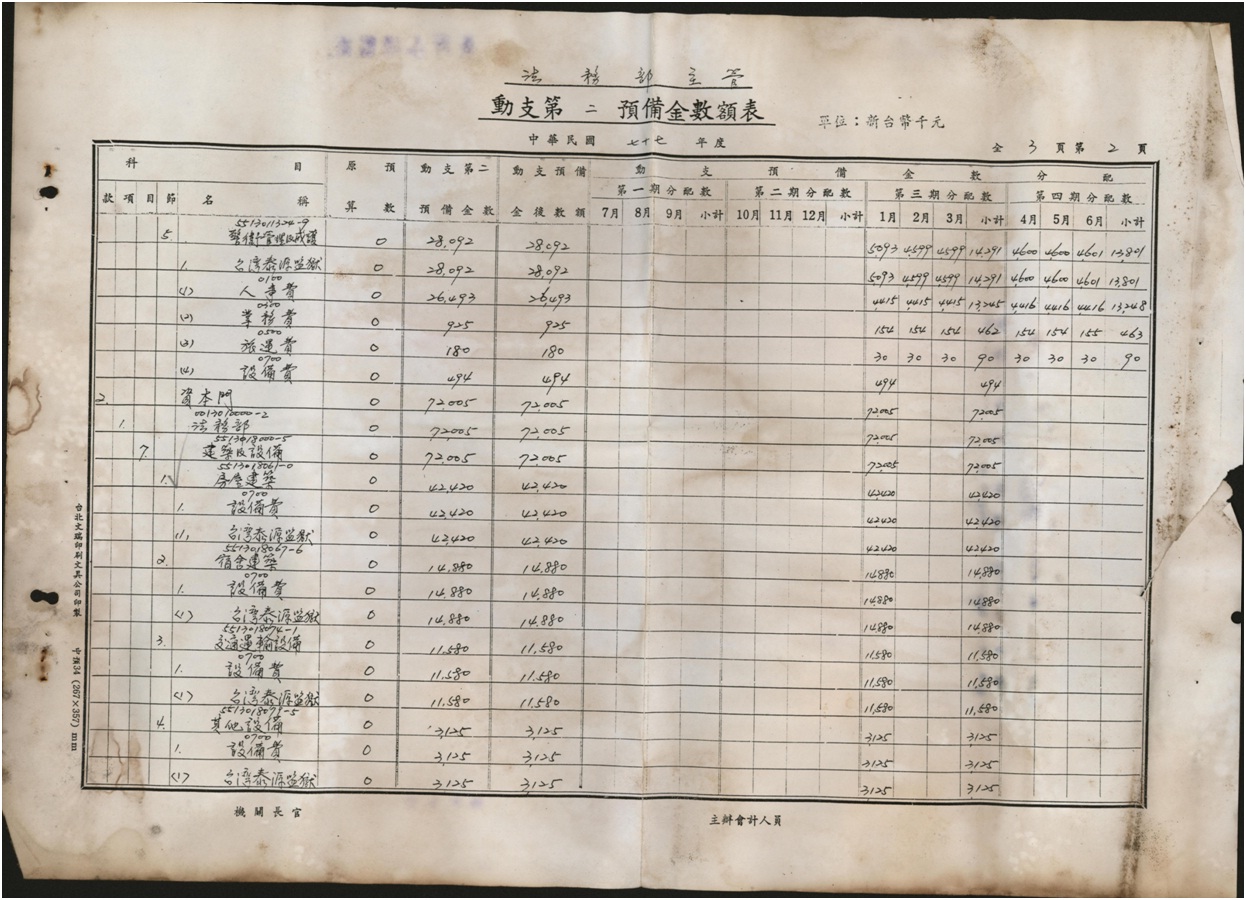 法務部主管
動支第二預備金數額表
單位：新台幣千元
中華民國 七十七 年度
全 3 頁第 2 頁
科 目 原預算數 動支第二預備金數 動支預備金後數額 動支預備金數分配
款 項 目 節 名稱 第一期分配數 第二期分配數 第三期分配數 第四期分配數
7月 8月 9月 小計 10月 11月 12月 小計 1月 2月 3月 小計 4月 5月 6月 小計
5513011324-9
5. 警衛管理及戒護 0 28,092 28,092 5093 4599 4599 14,291 4600 4600 4601 13,801
1. 台湾泰源監獄 0 28,092 28,092 5093 4599 4599 14,291 4600 4600 4601 13,801
0100
(1) 人事費 0 26,493 26,493 4415 4415 4415 13,245 4416 4416 4416 13,248
0300
(2) 業務費 0 925 925 154 154 154 462 154 154 155 463
0500
(3) 旅運費 0 180 180 30 30 30 90 30 30 30 90
0700
(4) 設備費 0 494 494 494 494
2. 資本門 0 72,005 72,005 72,005 72,005
0013010000-2
1. 法務部 0 72,005 72,005 72,005 72,005
5513018000-5
7. 建築及設備 0 72,005 72,005 72,005 72,005
5513018061-0
1. 房屋建築 0 42,420 42,420 42,420 42,420
0700
1. 設備費 0 42,420 42,420 42,420 42,420
(1) 台湾泰源監獄 0 42,420 42,420 42,420 42,420
5513018067-6
2. 宿舍建築 0 14,880 14,880 14,880 14,880
0700
1. 設備費 0 14,880 14,880 14,880 14,880
(1) 台湾泰源監獄 0 14,880 14,880 14,880 14,880
5513018074-1
3. 交通運輸設備 0 11,580 11,580 11,580 11,580
0700
1. 設備費 0 11,580 11,580 11,580 11,580
(1) 台湾泰源監獄 0 11,580 11,580 11,580 11,580
4. 其他設備 0 3,125 3,125 3,125 3,125
0700
1. 設備費 0 3,125 3,125 3,125 3,125
(1) 台湾泰源監獄 0 3,125 3,125 3,125 3,125
機關長官
主辦會計人員
台北文瑞印刷文具公司印製
34 (267×357) mm